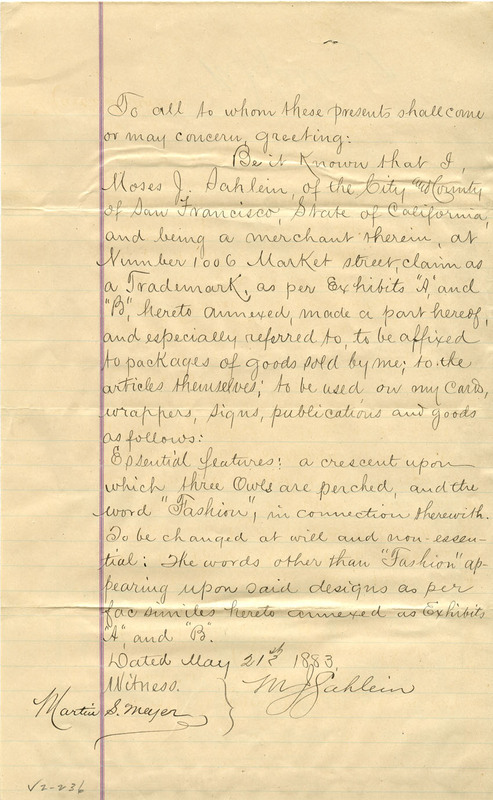 To all to whom these presents shall come
or may concern, greeting:
Be it Known that I,
Moses J. Sahlein, of the City and County
of San Francisco, State of California,
and being a merchant therein, at
Number 1006 Market street, claim as
a Trademark, as per Exhibits "A," and
"B", hereto annexed, made a part hereof,
and especially referred to, to be affixed
to packages of goods sold by me; to the
articles themselves; to be used on my cards,
wrappers, signs, publications and goods
as follows:
Essential features: a crescent upon
which three Owls are perched, and the
word "Fashion", in connection therewith.
To be changed at will and non-essen-
tial: The words other than "Fashion" ap-
pearing upon said designs as per
fac similes hereto annexed as Exhibits
"A", and "B".
Dated May 21st 1883.
Witness. } M J Sahlein
Martin S. Meyer
V2-236